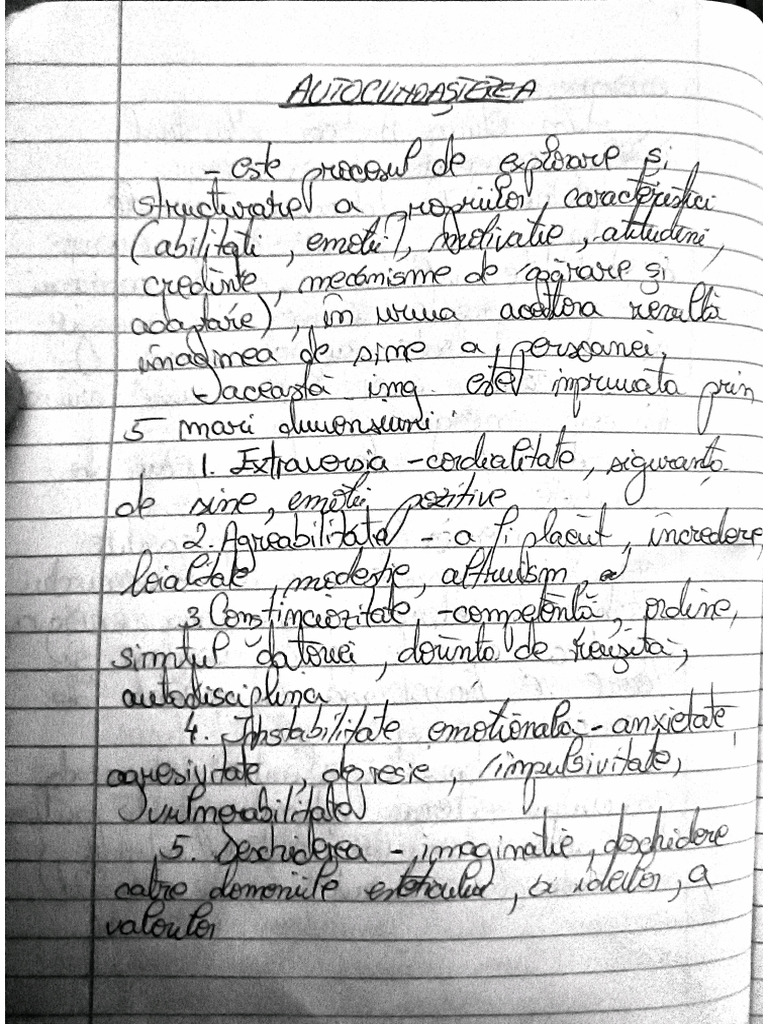 AUTOCUNOAȘTEREA
- este procesul de exploare și
structurare a propriilor caracteristici
(abilități, emoții, motivație, atitudini,
credințe, mecanisme de apărare și
adaptare), în urma acestora rezultă
imaginea de sine a persoanei,
această img. este imprimata prin
5 mari dimensiuni:
1. Extraversia - cordialitate, siguranța
de sine, emoții pozitive
2. Agreabilitate - a fi plăcut, încredere,
loialitate, modestie, altruism,
3 Constinciozitate, - competență, ordine,
simțul datoriei, dorința de reușită,
autodisciplina
4. Instabilitate emoțională - anxietate,
agresivitate, depresie, impulsivitate,
vulnerabilitate
5. Deschiderea - imaginație, deschidere
catre domeniile esteticului, a ideilor, a
valorilor